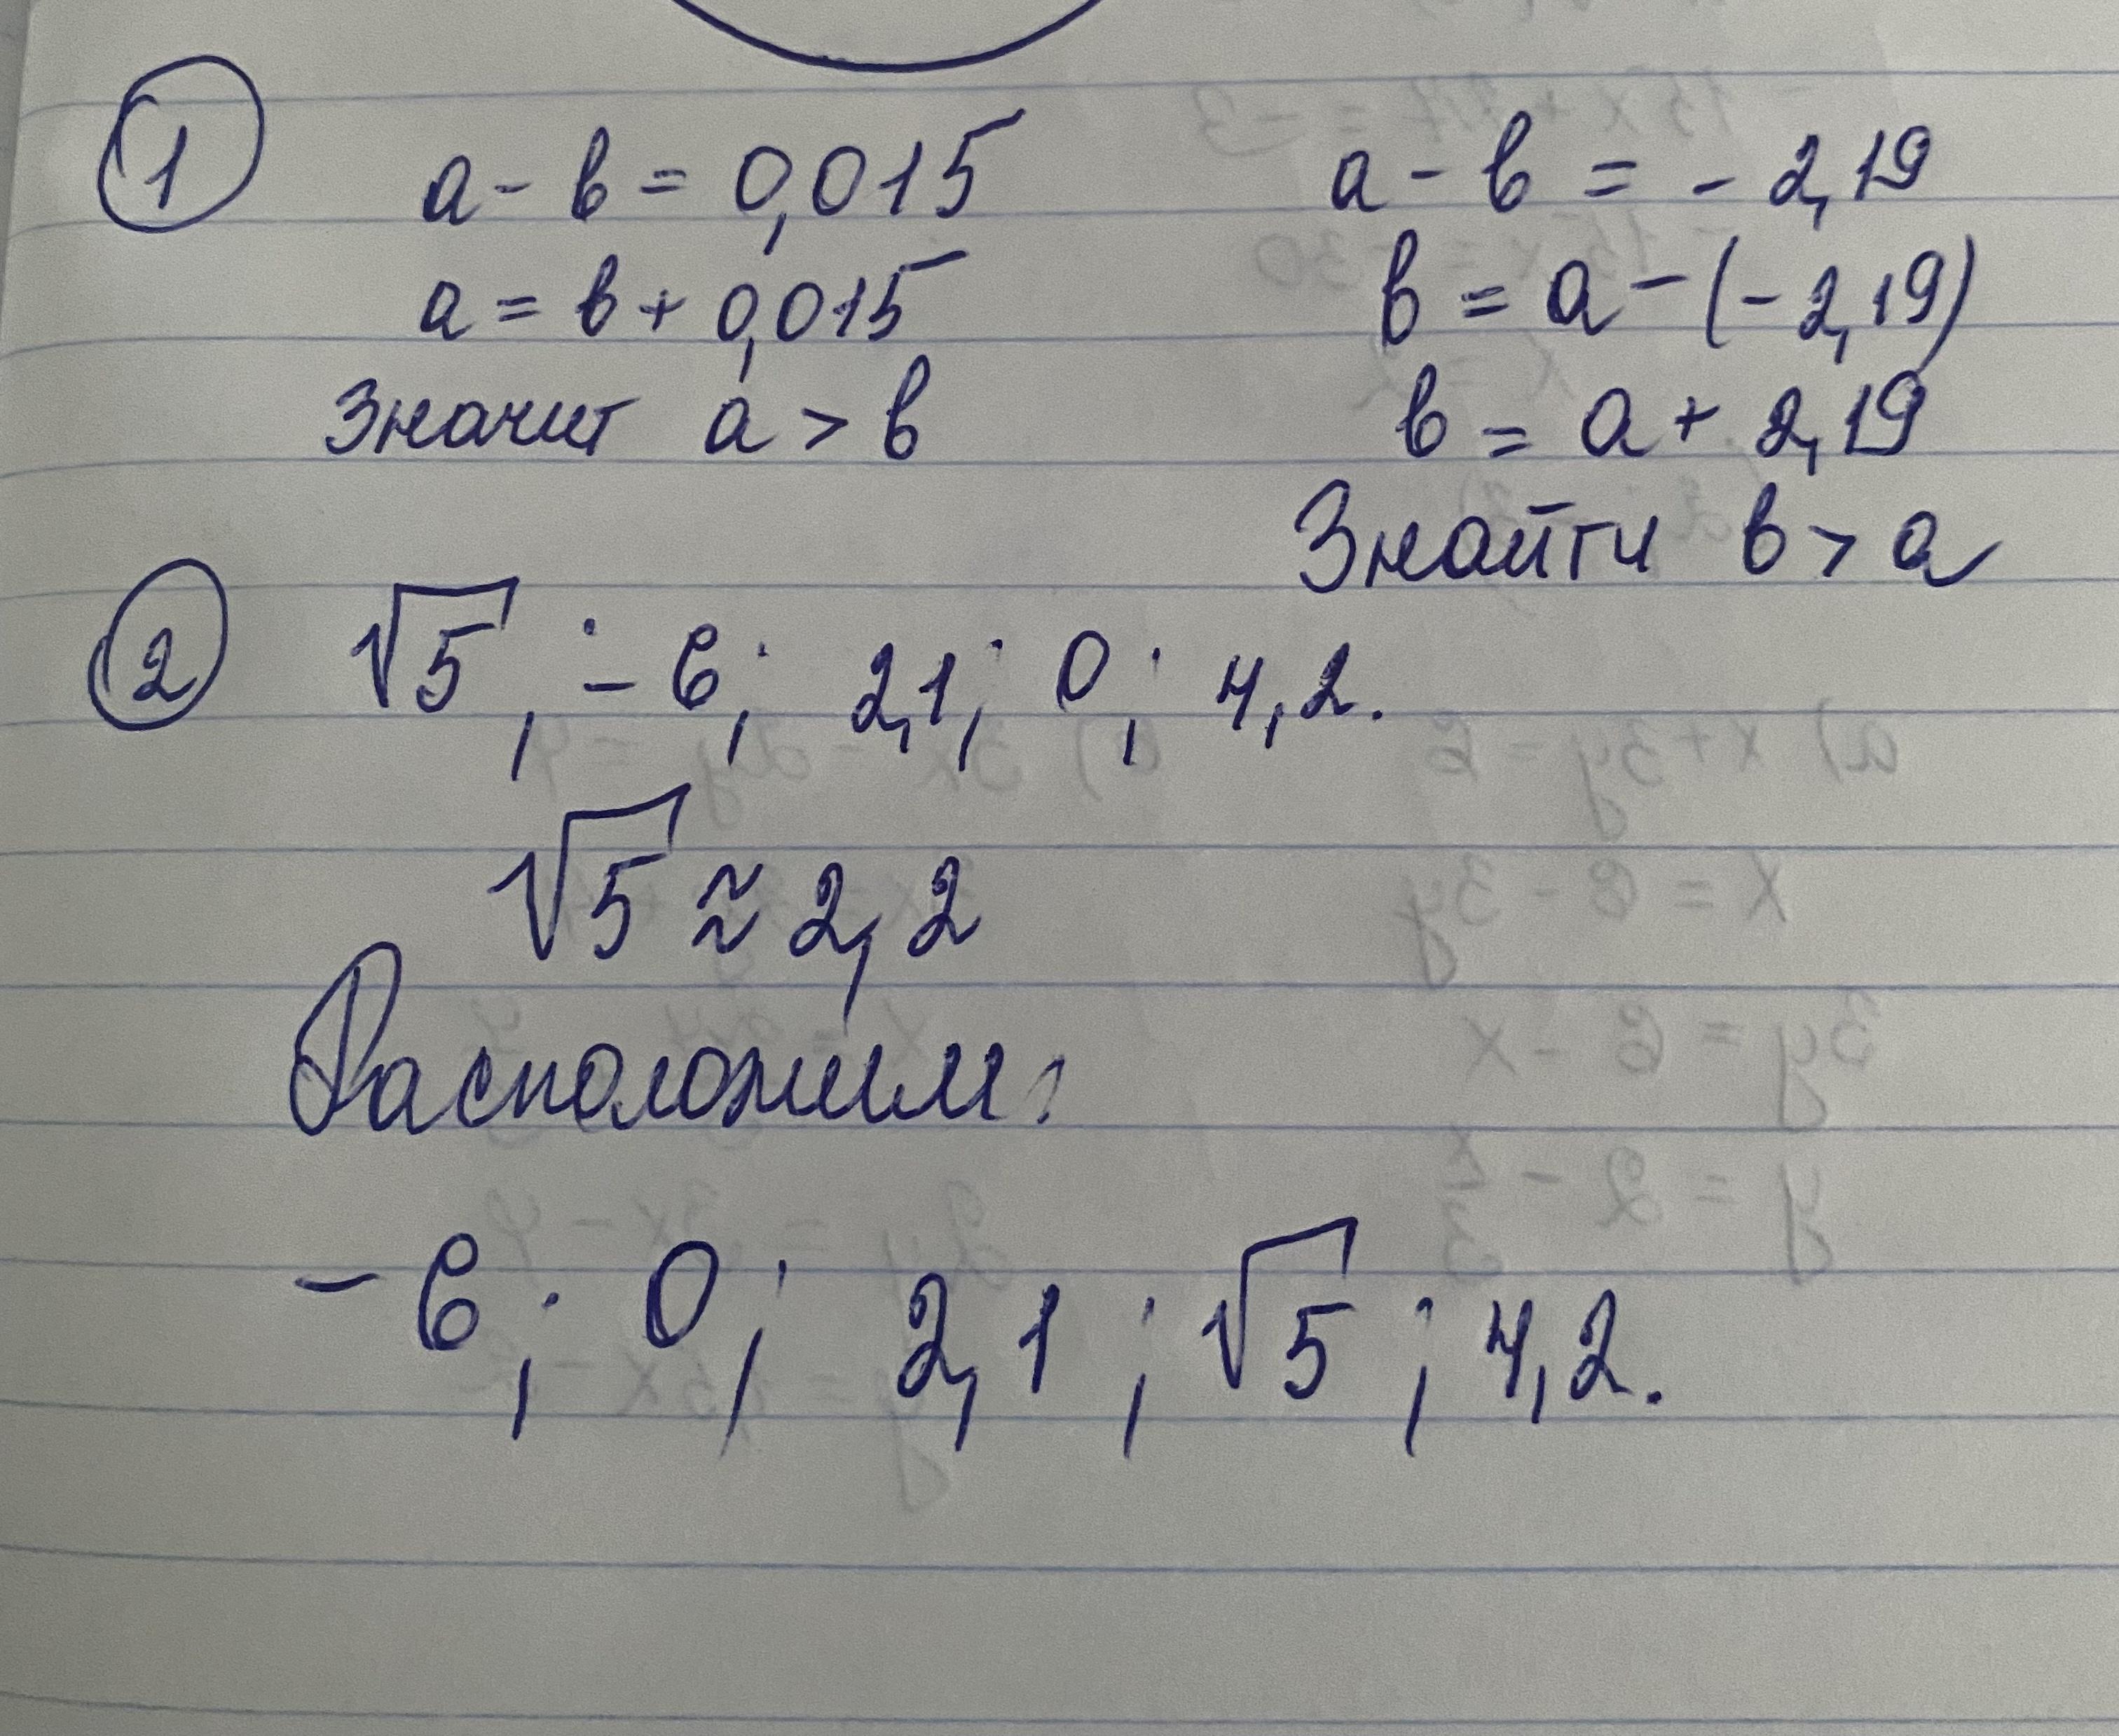 1
a - b = 0,015
a = b + 0,015
Значит a > b
a - b = - 2,19
b = a - (- 2,19)
b = a + 2,19
Знайти b > a
2
√5; - 6; 2,1; 0; 4,2.
√5 ≈ 2,2
Расположим:
- 6; 0; 2,1; √5; 4,2.